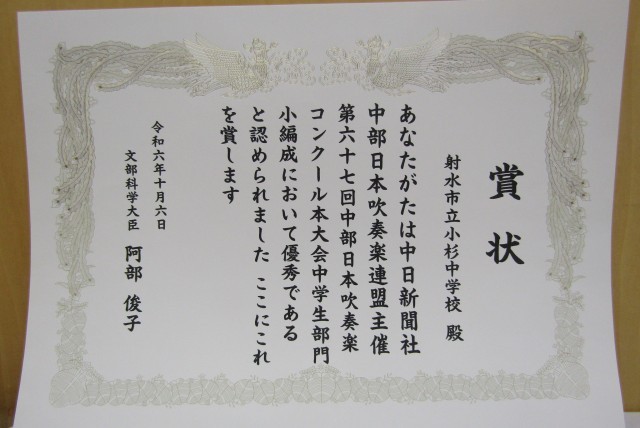 賞状
射水市立小杉中学校 殿
あなたがたは中日新聞社
中部日本吹奏楽連盟主催
第六十七回中部日本吹奏楽
コンクール本大会中学生部門
小編成において優秀である
と認められました ここにこれ
を賞します
令和六年十月六日
文部科学大臣 阿部 俊子